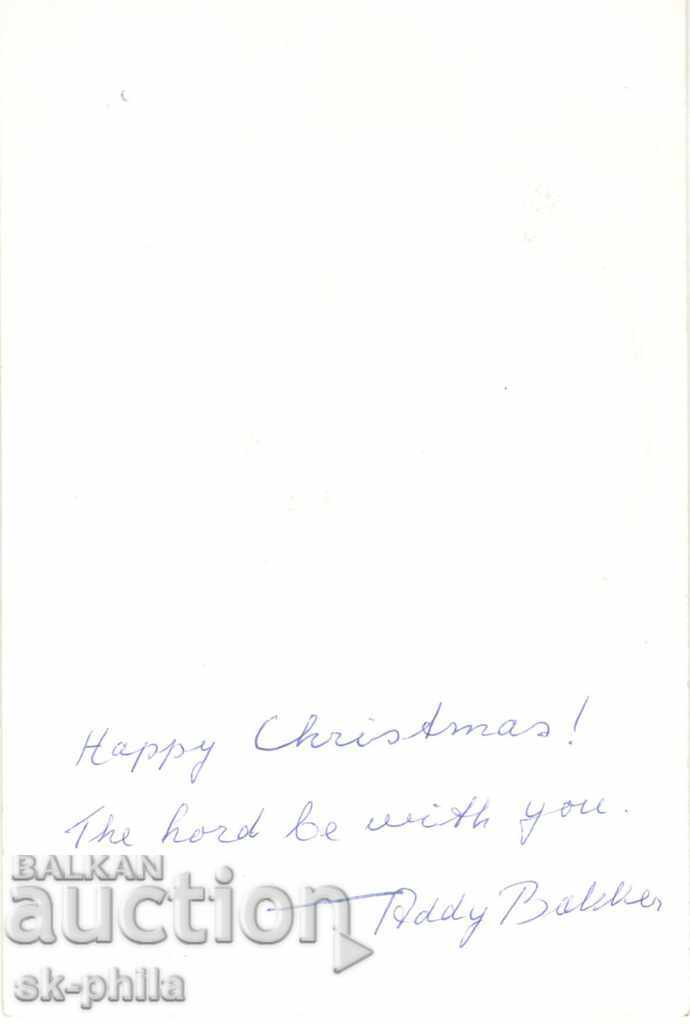 Happy Christmas!
The Lord be with you.
— Addy Bakker
BALKAN
auction
sk-phila